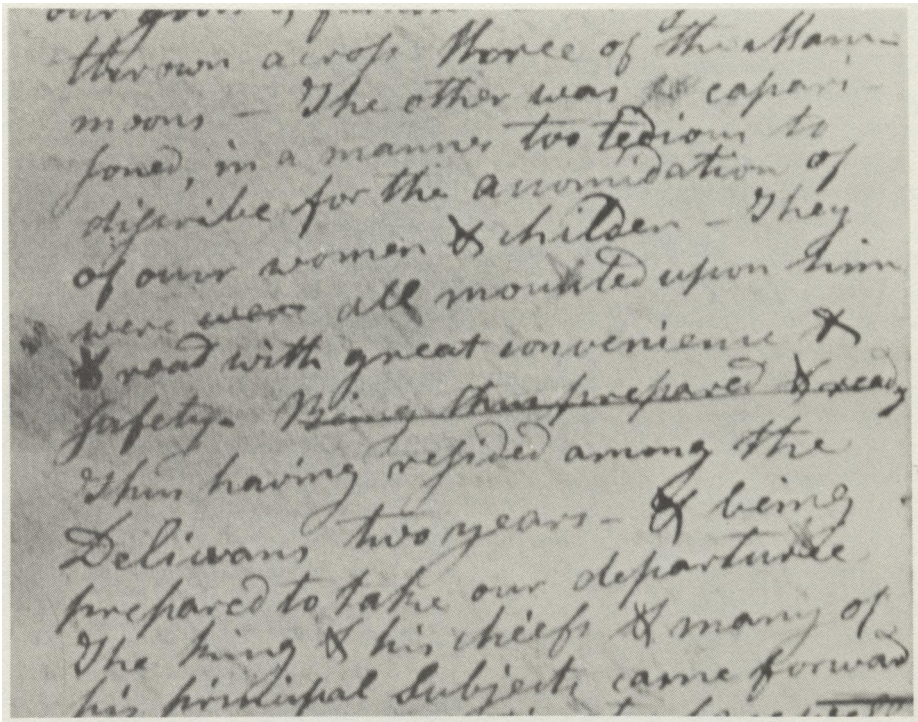 our
thrown across three of the Mam-
moons — The other was capari-
soned, in a manner too tedious to
discribe for the acomidation of
of our women & children – They
were were all mounted upon him
& road with great convenience &
safety. Being thus prepared & ready
Thus having resided among the
Deliwans two years – & being
prepared to take our departure
The king & his chiefs & many of
his principal Subjects came forward